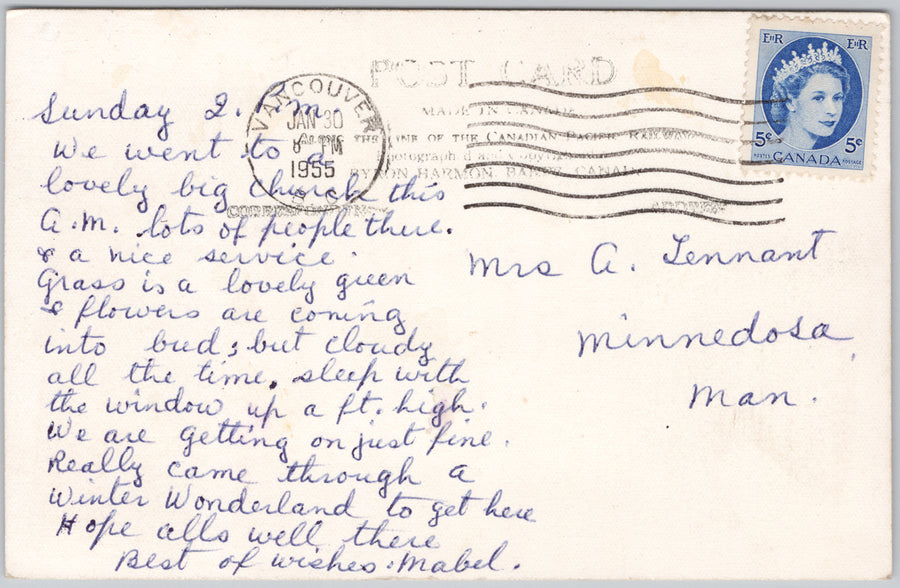 POST CARD
MADE IN CANADA
ALONG THE LINE OF THE CANADIAN PACIFIC RAILWAY
Photographed and Copyright
BYRON HARMON, BANFF, CANADA
CORRESPONDENCE
ADDRESS
VANCOUVER
JAN 30
8 PM
1955
B C
EIIR EIIR
5¢ 5¢
POSTES CANADA POSTAGE
Sunday 2. P.M.
We went to a
lovely big church this
A.M. lots of people there.
& a nice service.
Grass is a lovely green
& flowers are coming
into bud; but cloudy
all the time. sleep with
the window up a ft. high.
We are getting on just fine.
Really came through a
Winter Wonderland to get here
Hope alls well there
Best of wishes. Mabel.
Mrs A. Tennant
Minnedosa
Man.